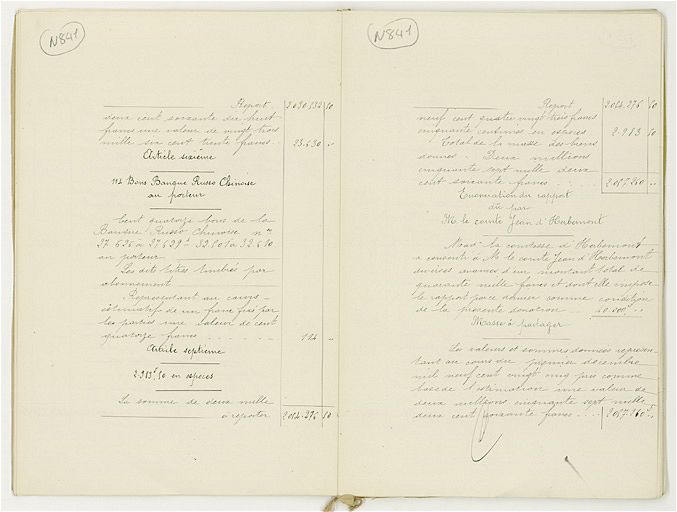 N841
Report 2.030.532 50
deux cent soixante dix huit
francs une valeur de vingt trois
mille six cent trente francs. 23.630 "
Article sixième
114 Bons Banque Russo Chinoise
au porteur
Cent quatorze bons de la
Banque Russo Chinoise nos
au porteur
Les dits titres timbrés par
abonnement
Représentant au cours
estimatif de un franc fixé par
les parties une valeur de cent
quatorze francs 114 "
Article septième
2.983f,50 en espèces
La somme de deux mille
à reporter 2.054.276 50
N841
Report 2.054.276 50
neuf cent quatre vingt trois francs
cinquante centimes en espèces 2.983 50
Total de la masse des biens
donnés. Deux millions
cinquante sept mille deux
cent soixante francs 2.057.260 "
Enonciation du rapport
dû par
M. le comte Jean d'Herbemont
Made la comtesse d'Herbemont
a consenti à M. le comte Jean d'Herbemont
diverses avances d'un montant total de
quarante mille francs et dont elle impose
le rapport pour donner comme condition
de la présente donation 40.000f "
Masse à partager
Les valeurs et sommes données représen-
tant au cours du premier décembre
mil neuf cent vingt cinq pris comme
base de l'estimation une valeur de
deux millions cinquante sept mille
deux cent soixante francs 2.057.260f "